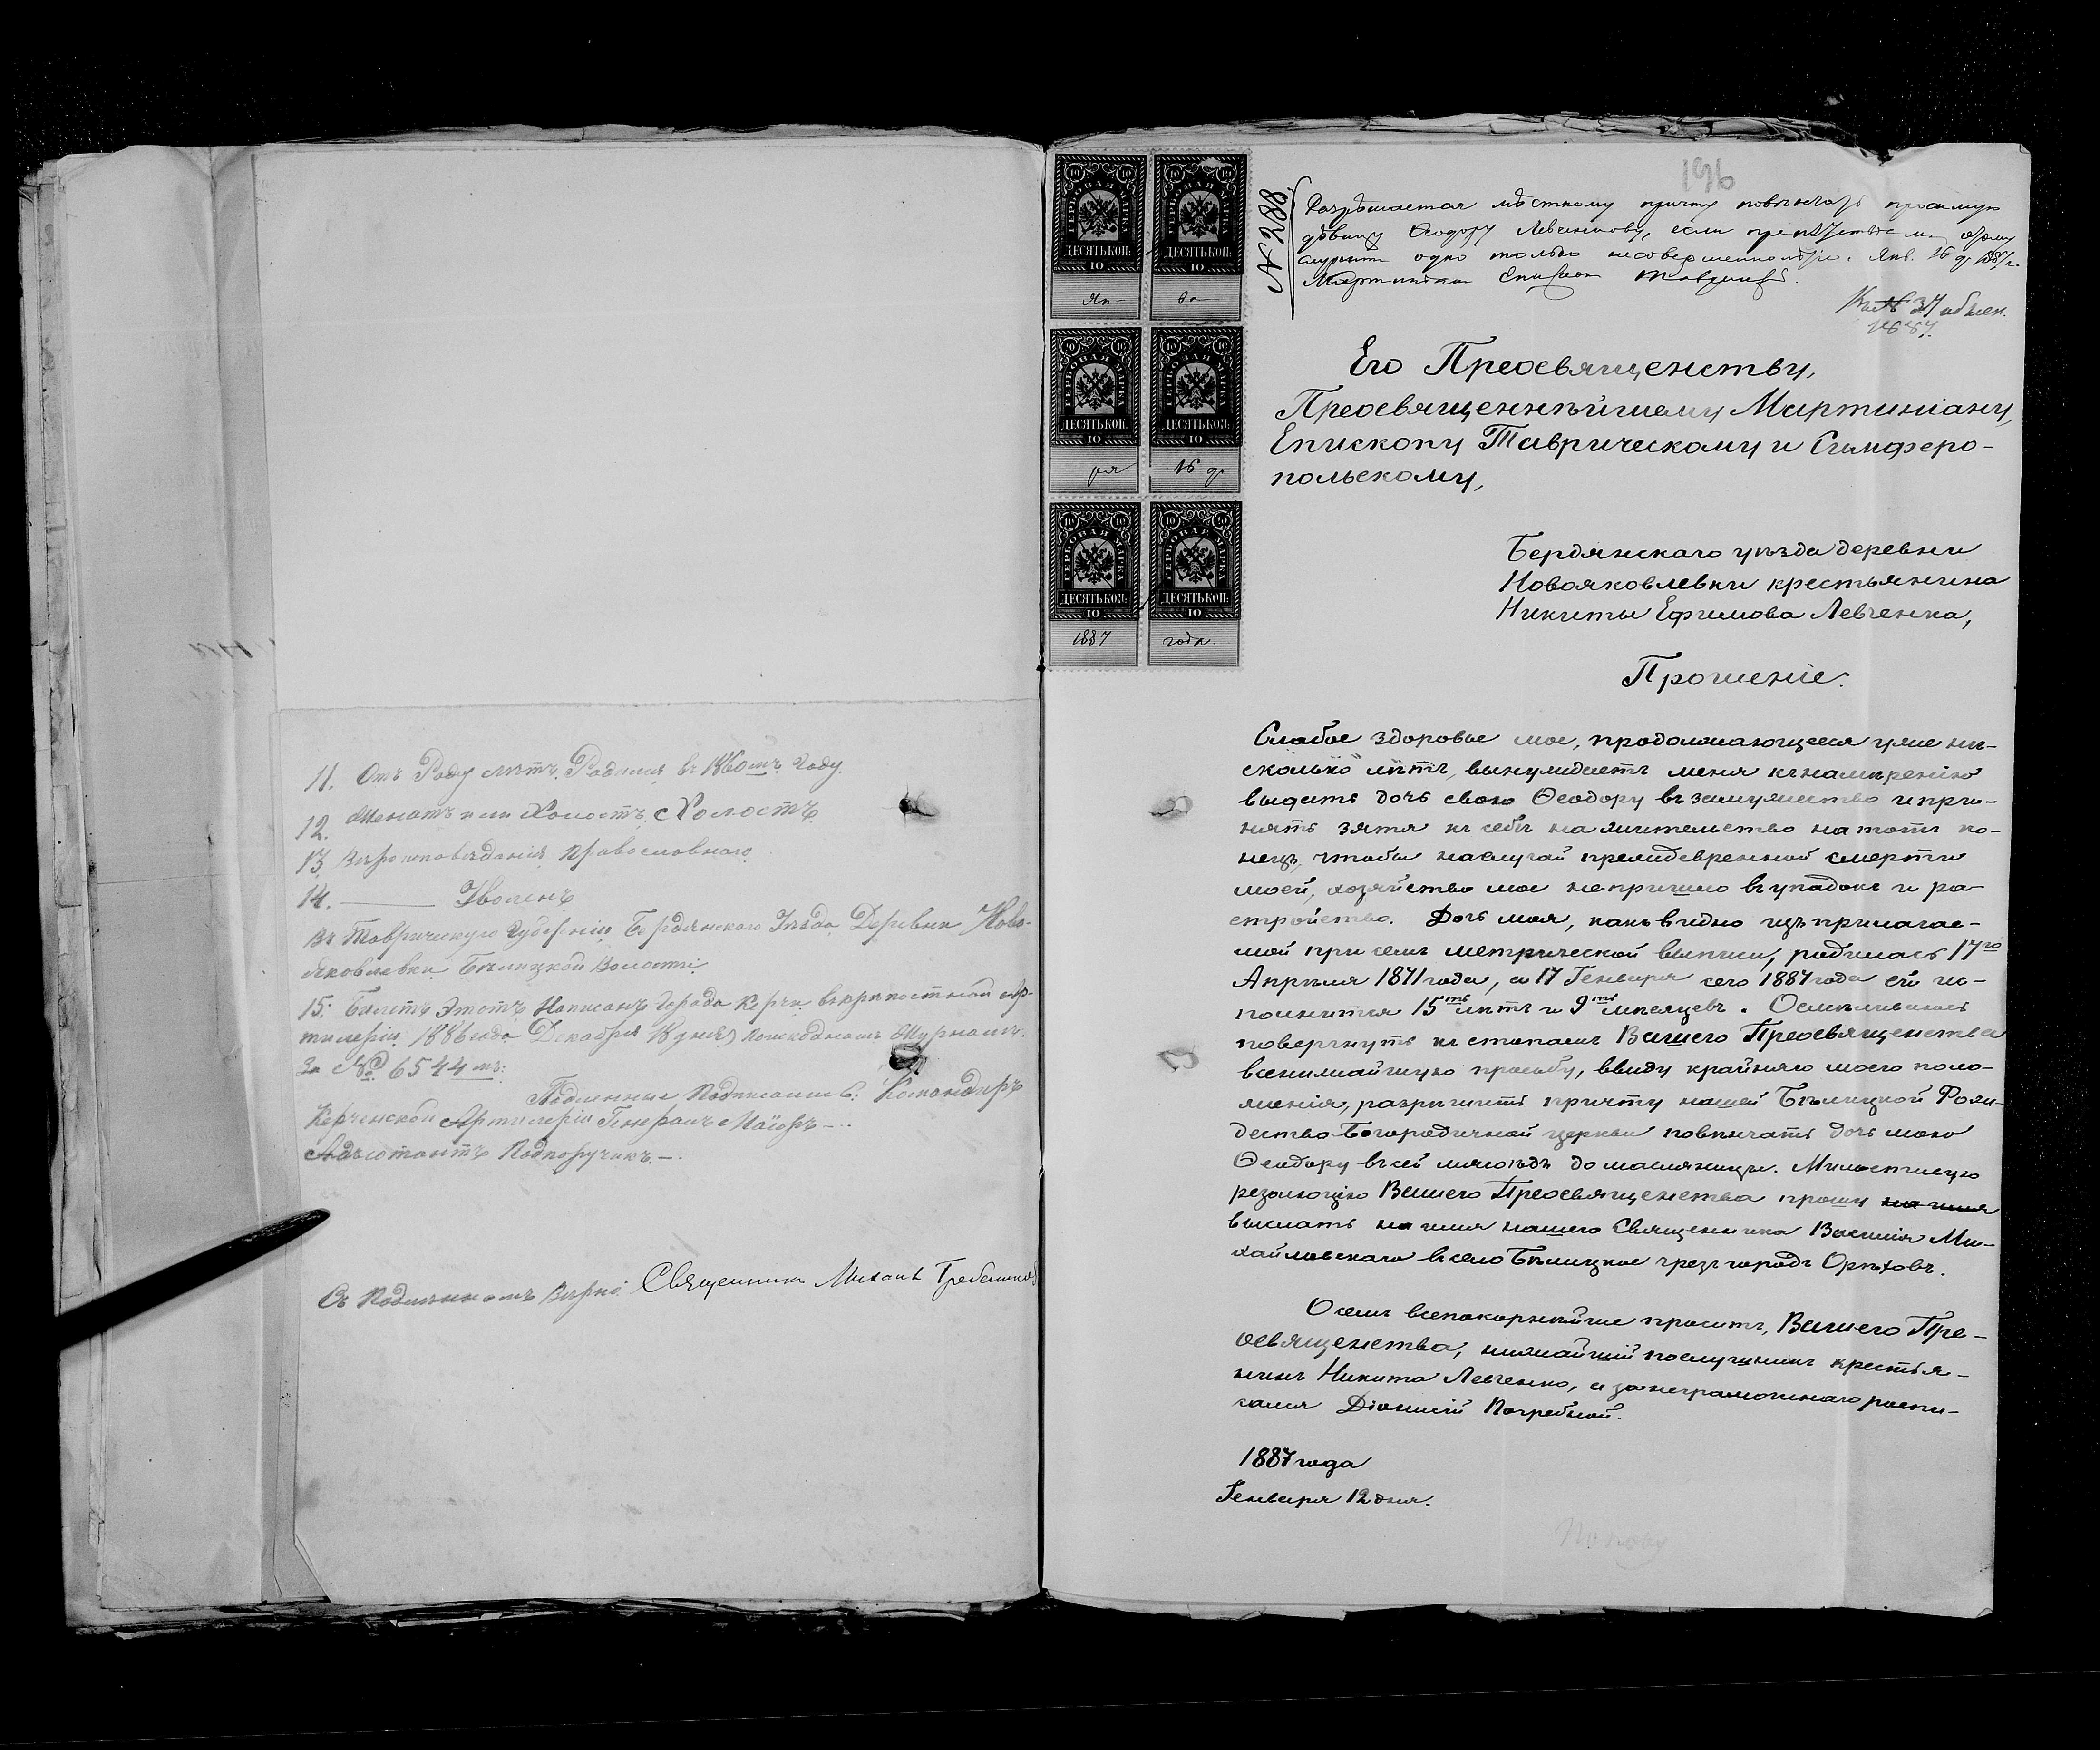 11. Отъ Роду лѣтъ. Родился въ 1860мъ году.
12. Женатъ или Холостъ. Холостъ
13. Вѣроисповѣданія Православнаго
14. Уволенъ
Въ Таврическую Губернію Бердянскаго Уѣзда Деревни Ново-
яковлевки Бѣлицкой Волости
15. Билетъ Этотъ Написанъ Города Керчи. въ крѣпостной ар-
тилеріи 1886 года Декабря 18 дня
За № 6544мъ:
Подлинные Подписали: Командиръ
Керченской Артилеріи Генералъ Маіоръ —.
Адъютантъ Подпоручикъ. —.
Съ Подлиннымъ Вѣрно: Священникъ Михаилъ
ГЕРБОВАЯ МАРКА
ДЕСЯТЬ КОП.
10
Ян-
ГЕРБОВАЯ МАРКА
ДЕСЯТЬ КОП.
10
ва-
ГЕРБОВАЯ МАРКА
ДЕСЯТЬ КОП.
10
ря
ГЕРБОВАЯ МАРКА
ДЕСЯТЬ КОП.
10
16 д.
ГЕРБОВАЯ МАРКА
ДЕСЯТЬ КОП.
10
1887
ГЕРБОВАЯ МАРКА
ДЕСЯТЬ КОП.
10
года.
196
№ 288
Разрѣшается мѣстному причту повѣнчать просимую
дѣвицу Ѳеодору Левченкову, если препятствіемъ этому
служитъ одно только несовершеннолѣтіе. Янв. 16 д. 1887 г.
Мартиніанъ Епископъ Таврическій.
Къ № 37
1887.
Его Преосвященству,
Преосвященнѣйшему Мартиніану,
Епископу Таврическому и Симферо-
польскому,
Бердянскаго уѣзда деревни
Новояковлевки крестьянина
Никиты Ефимова Левченка,
Прошеніе.
Слабое здоровье мое, продолжающееся уже нѣ-
сколько лѣтъ, вынуждаетъ меня къ намѣренію
выдать дочь свою Ѳеодору въ замужество и при-
нять зятя къ себѣ на жительство на тотъ ко-
нецъ, чтобы на случай преждевременной смерти
моей, хозяйство мое не пришло въ упадокъ и ра-
стройство. Дочь моя, какъ видно изъ прилагае-
мой при семъ метрической выписи, родилась 17го
Апрѣля 1871 года, а 17 Генваря сего 1887 года ей ис-
полнится 15ть лѣтъ и 9ть мѣсяцевъ. Осмѣливаюсь
повергнуть къ стопамъ Вашего Преосвященства
всенижайшую просьбу, ввиду крайняго моего поло-
женія, разрѣшить причту нашей Бѣлицкой Рож-
дество-Богородичной церкви повѣнчать дочь мою
Ѳеодору въ сей мясоѣдъ до масляницы. Милостивую
резолюцію Вашего Преосвященства прошу на имя
выслать на имя нашего Священника Василія Ми-
хайловскаго въ село Бѣлицкое чрезъ городъ Орѣховъ.
О семъ всепокорнѣйше проситъ, Вашего Пре-
освященства, нижайшій послушникъ крестья-
нинъ Никита Левченко, а за неграмотнаго роспи-
сался Діонисій Погребной.
1887 года
Генваря 12 дня.